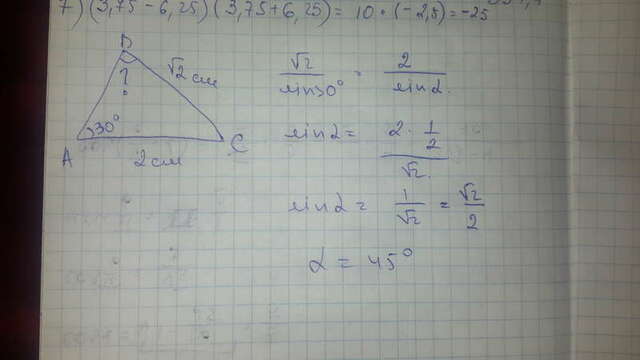 7) (3,75 - 6,25) (3,75 + 6,25) = 10 · (-2,5) = -25
D
?
√2 см
30°
A
C
2 см
√2 / sin30° = 2 / sin α.
sin α = 2 · 1/2 / √2.
sin α = 1/√2 = √2/2
α = 45°